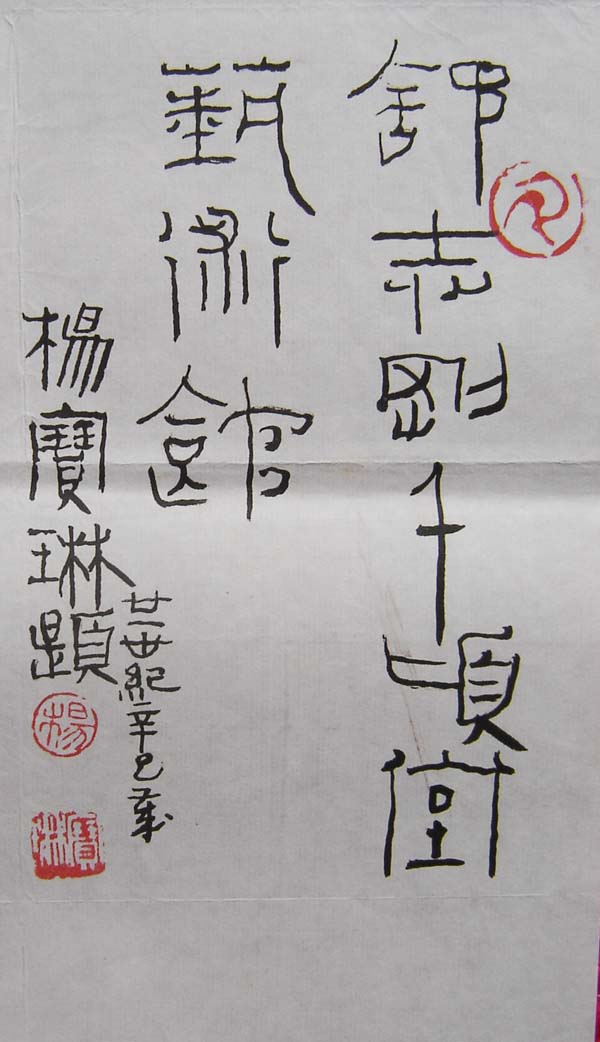 舒志剛千頃堂
藝術館
楊寶琳題
廿一世紀辛巳歲
楊
寶琳